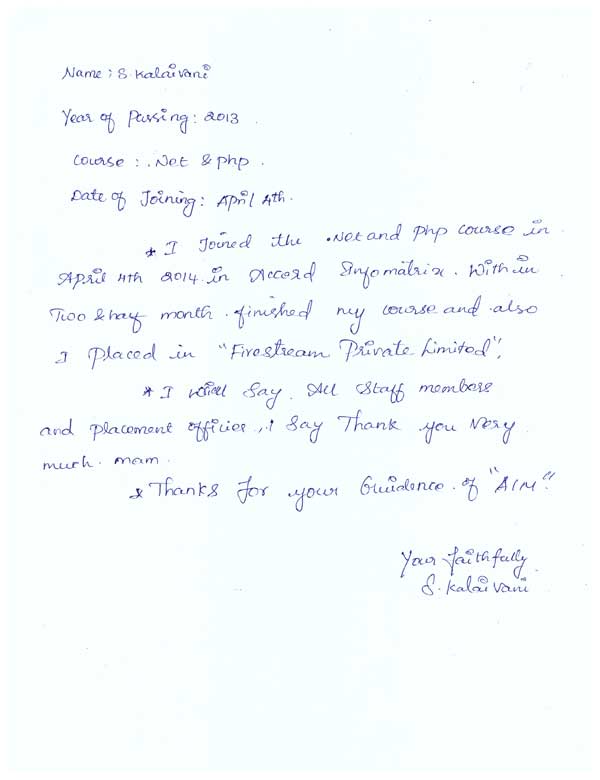 Name : S. Kalaivani
Year of Passing : 2013 .
Course : . Net & php .
Date of Joining : April 4th .
* I Joined the .Net and php course in
April 4th 2014 in Accord Infomatrix . With in
Two & half month . finished my course and also
I placed in "Firestream Private Limited",
* I will Say . All Staff members
and placement officier , I Say Thank you Very
much . mam .
* Thanks for your Guidence . of "AIM".
Your faithfully
S. Kalaivani